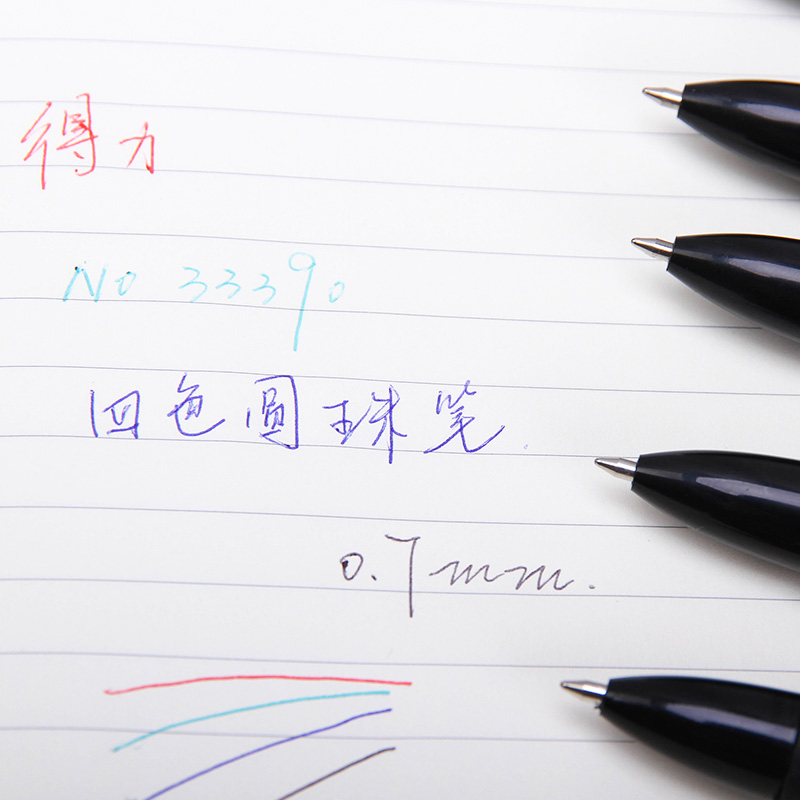 得力
No 33390
四色圆珠笔.
0.7mm.